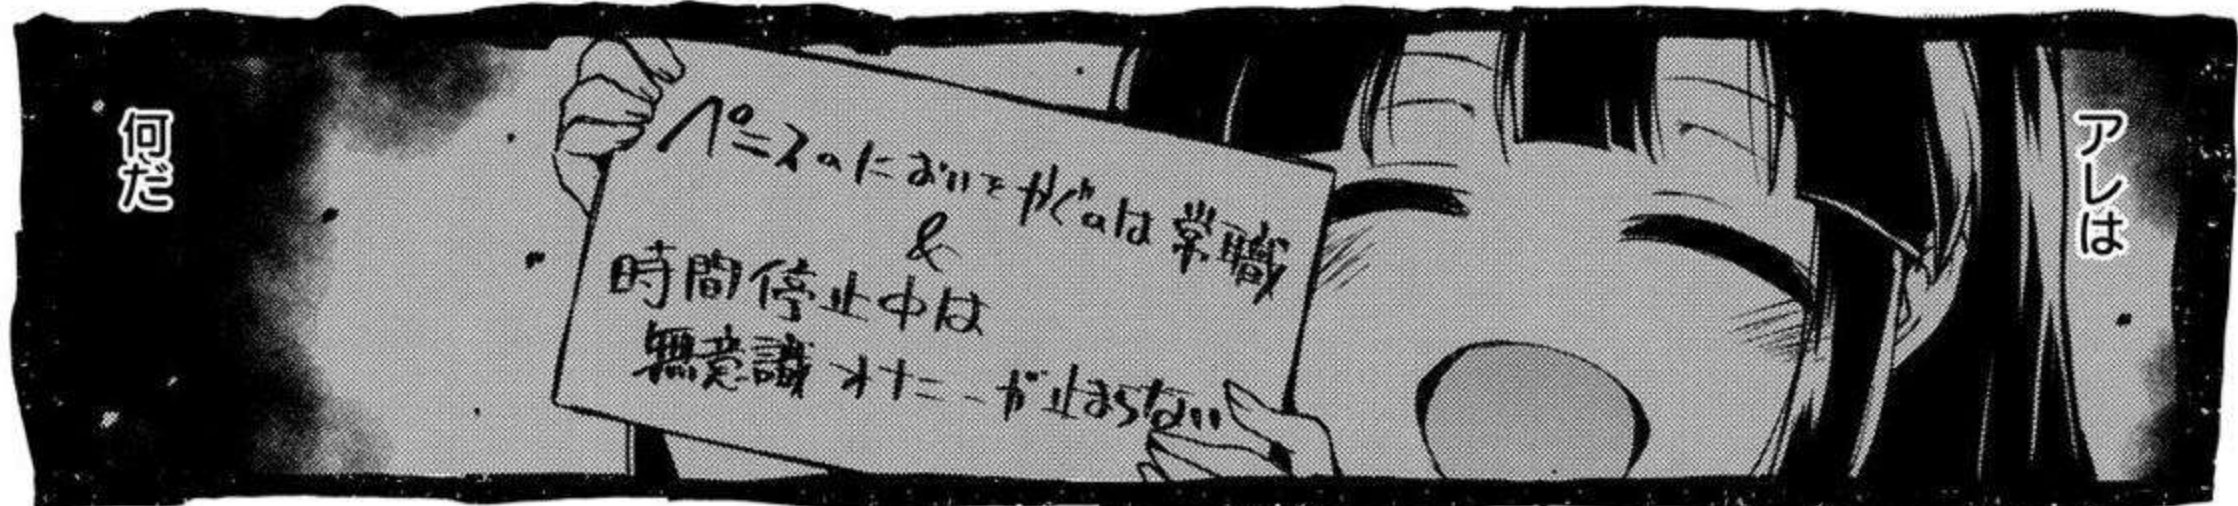 アレは
ペニスのにおいをかぐのは常職
&
時間停止中は
無意識オナニーが止まらない
何だ